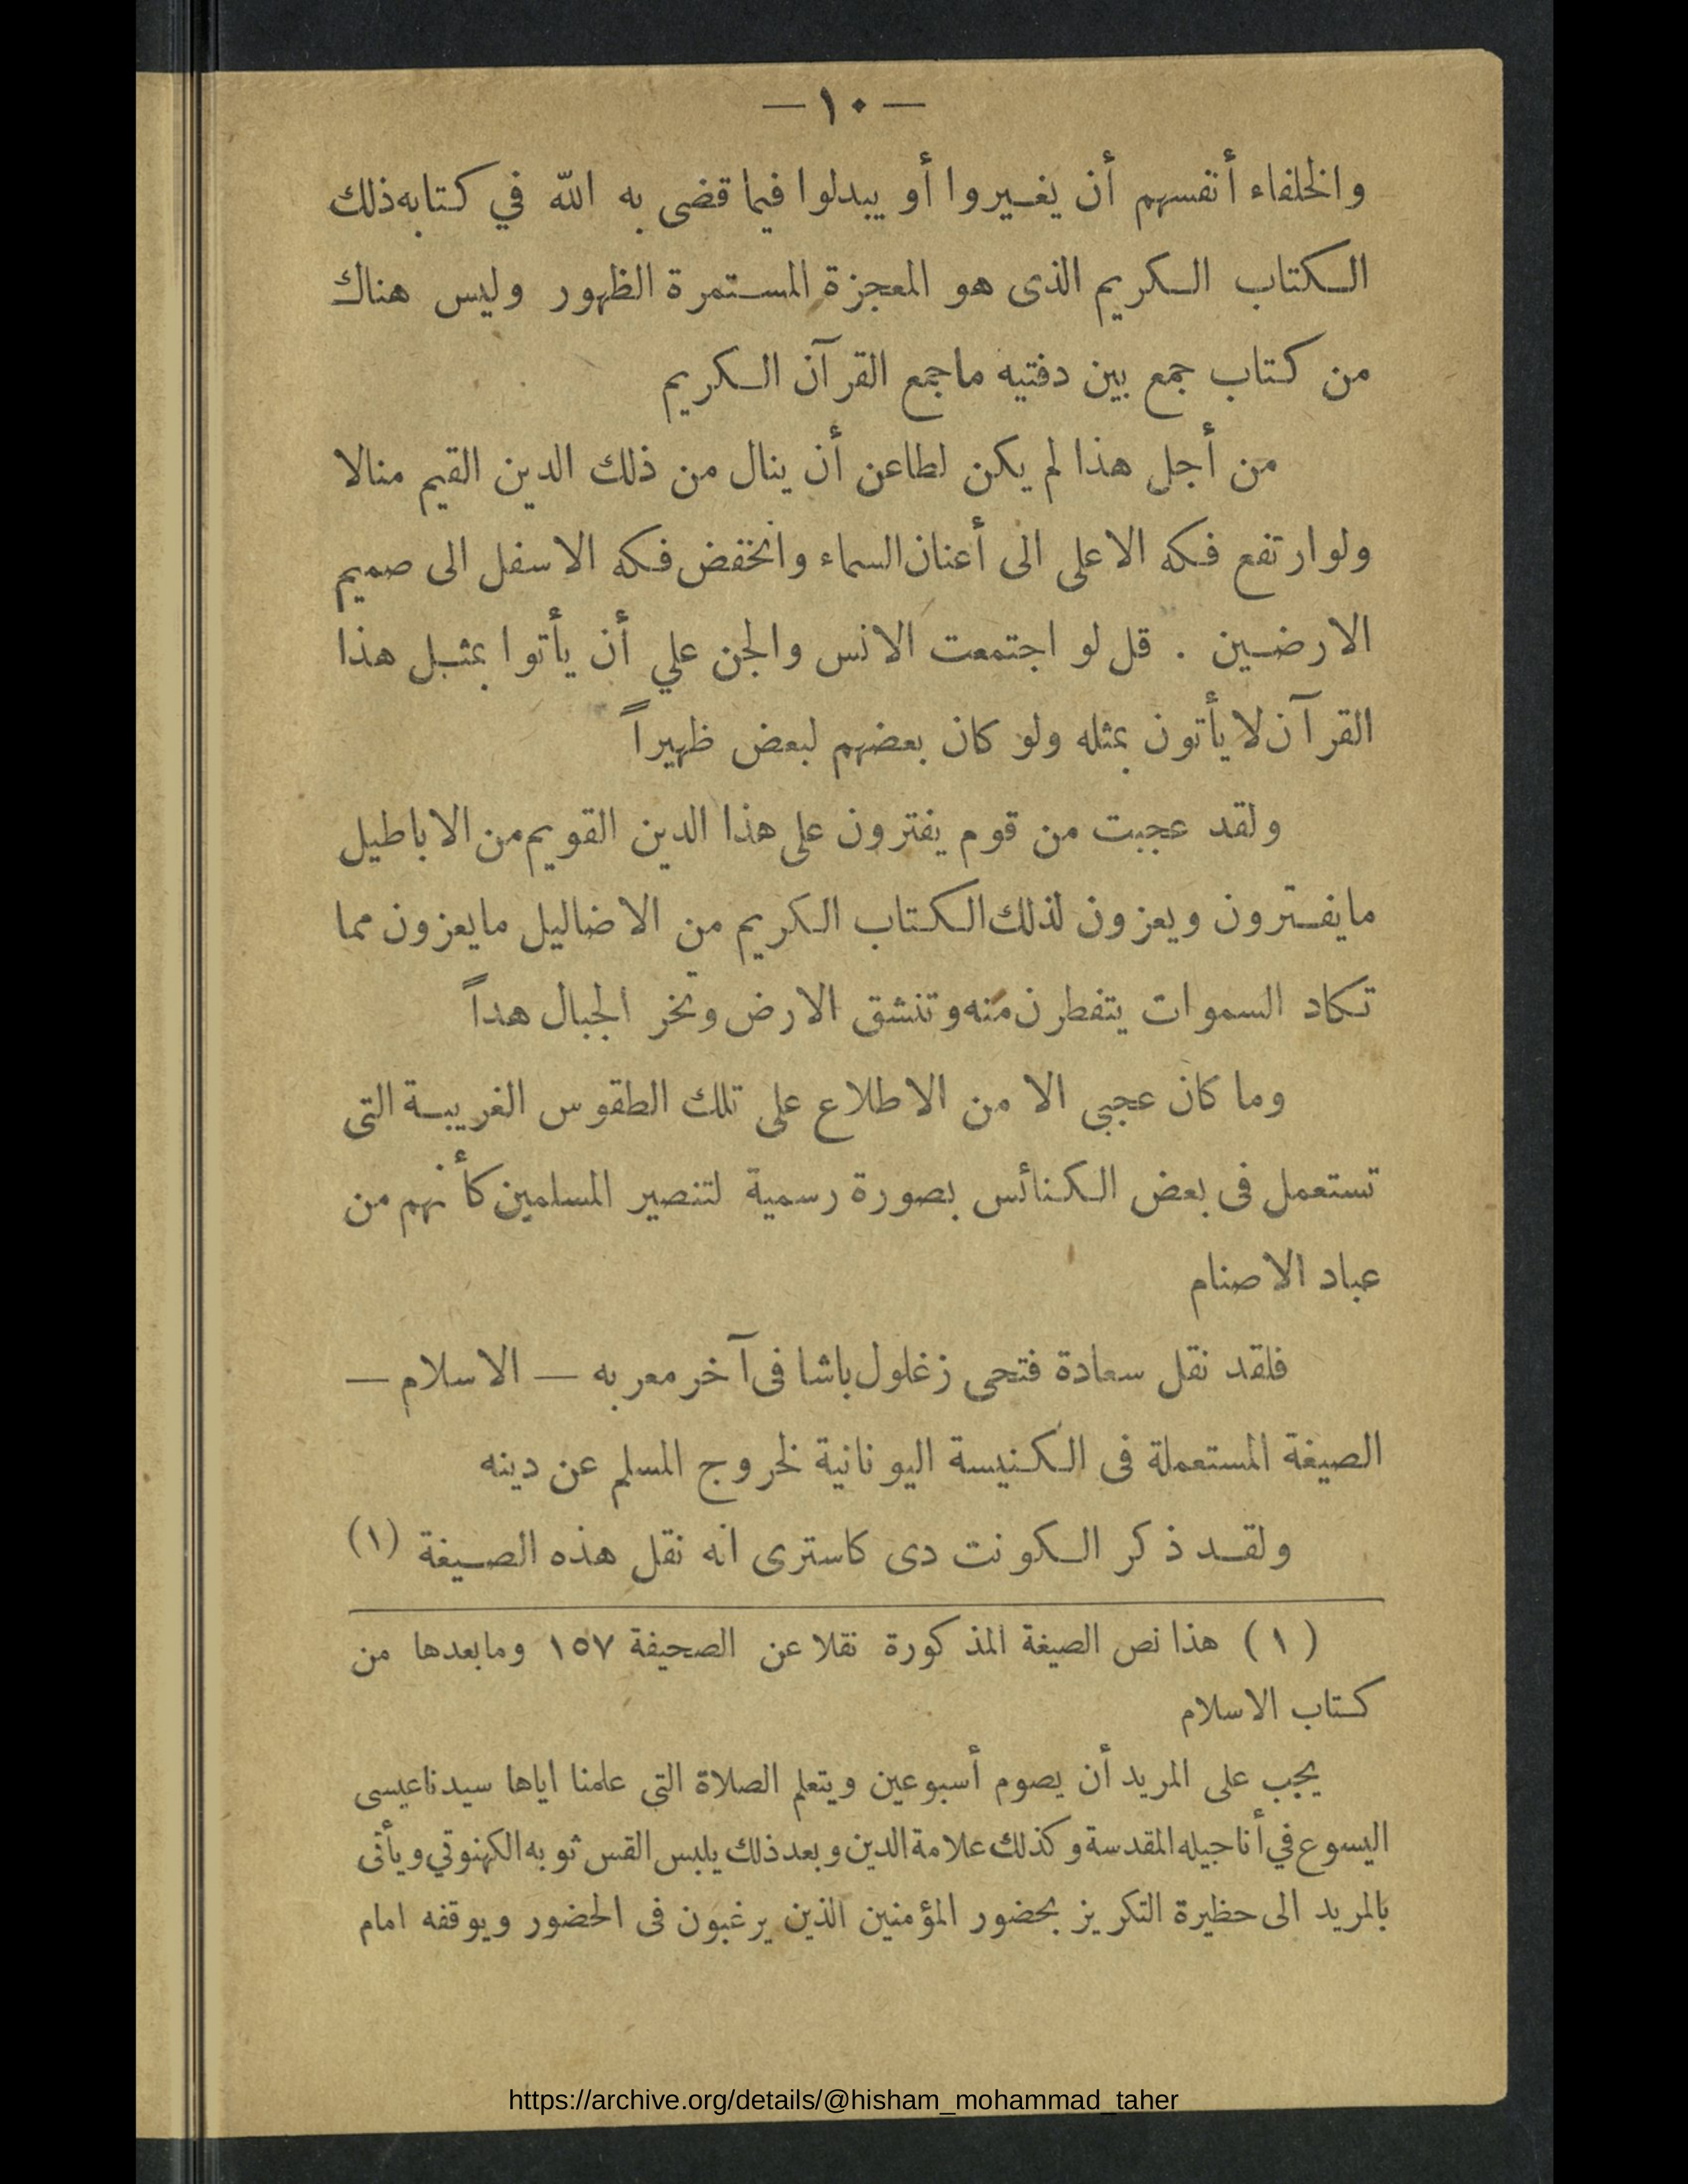 — ١٠ —
والخلفاء أنفسهم أن يغيروا أو يبدلوا فيما قضى به الله في كتابه ذلك
الكتاب الكريم الذى هو المعجزة المستمرة الظهور وليس هناك
من كتاب جمع بين دفتيه ماجمع القرآن الكريم
من أجل هذا لم يكن لطاعن أن ينال من ذلك الدين القيم منالا
ولوارتفع فكه الاعلى الى أعنان السماء وانخفض فكه الاسفل الى صميم
الارضين . قل لو اجتمعت الانس والجن علي أن يأتوا بمثل هذا
القرآن لا يأتون بمثله ولو كان بعضهم لبعض ظهيراً
ولقد عجبت من قوم يفترون على هذا الدين القويم من الاباطيل
مايفترون ويعزون لذلك الكتاب الكريم من الاضاليل مايعزون مما
تكاد السموات يتفطرن منه وتنشق الارض وتخر الجبال هداً
وما كان عجبى الا من الاطلاع على تلك الطقوس الغريبة التى
تستعمل فى بعض الكنائس بصورة رسمية لتنصير المسلمين كأنهم من
عباد الاصنام
فلقد نقل سعادة فتحى زغلول باشا فى آخر معربه — الاسلام —
الصيغة المستعملة فى الكنيسة اليونانية لخروج المسلم عن دينه
ولقد ذكر الكونت دى كاسترى انه نقل هذه الصيغة (١)
(١) هذا نص الصيغة المذكورة نقلا عن الصحيفة ١٥٧ ومابعدها من
كتاب الاسلام
يجب على المريد أن يصوم أسبوعين ويتعلم الصلاة التى علمنا اياها سيدنا عيسى
اليسوع في أناجيله المقدسة وكذلك علامة الدين وبعد ذلك يلبس القس ثوبه الكهنوتي ويأتى
بالمريد الى حظيرة التكريز بحضور المؤمنين الذين يرغبون فى الحضور ويوقفه امام
https://archive.org/details/@hisham_mohammad_taher